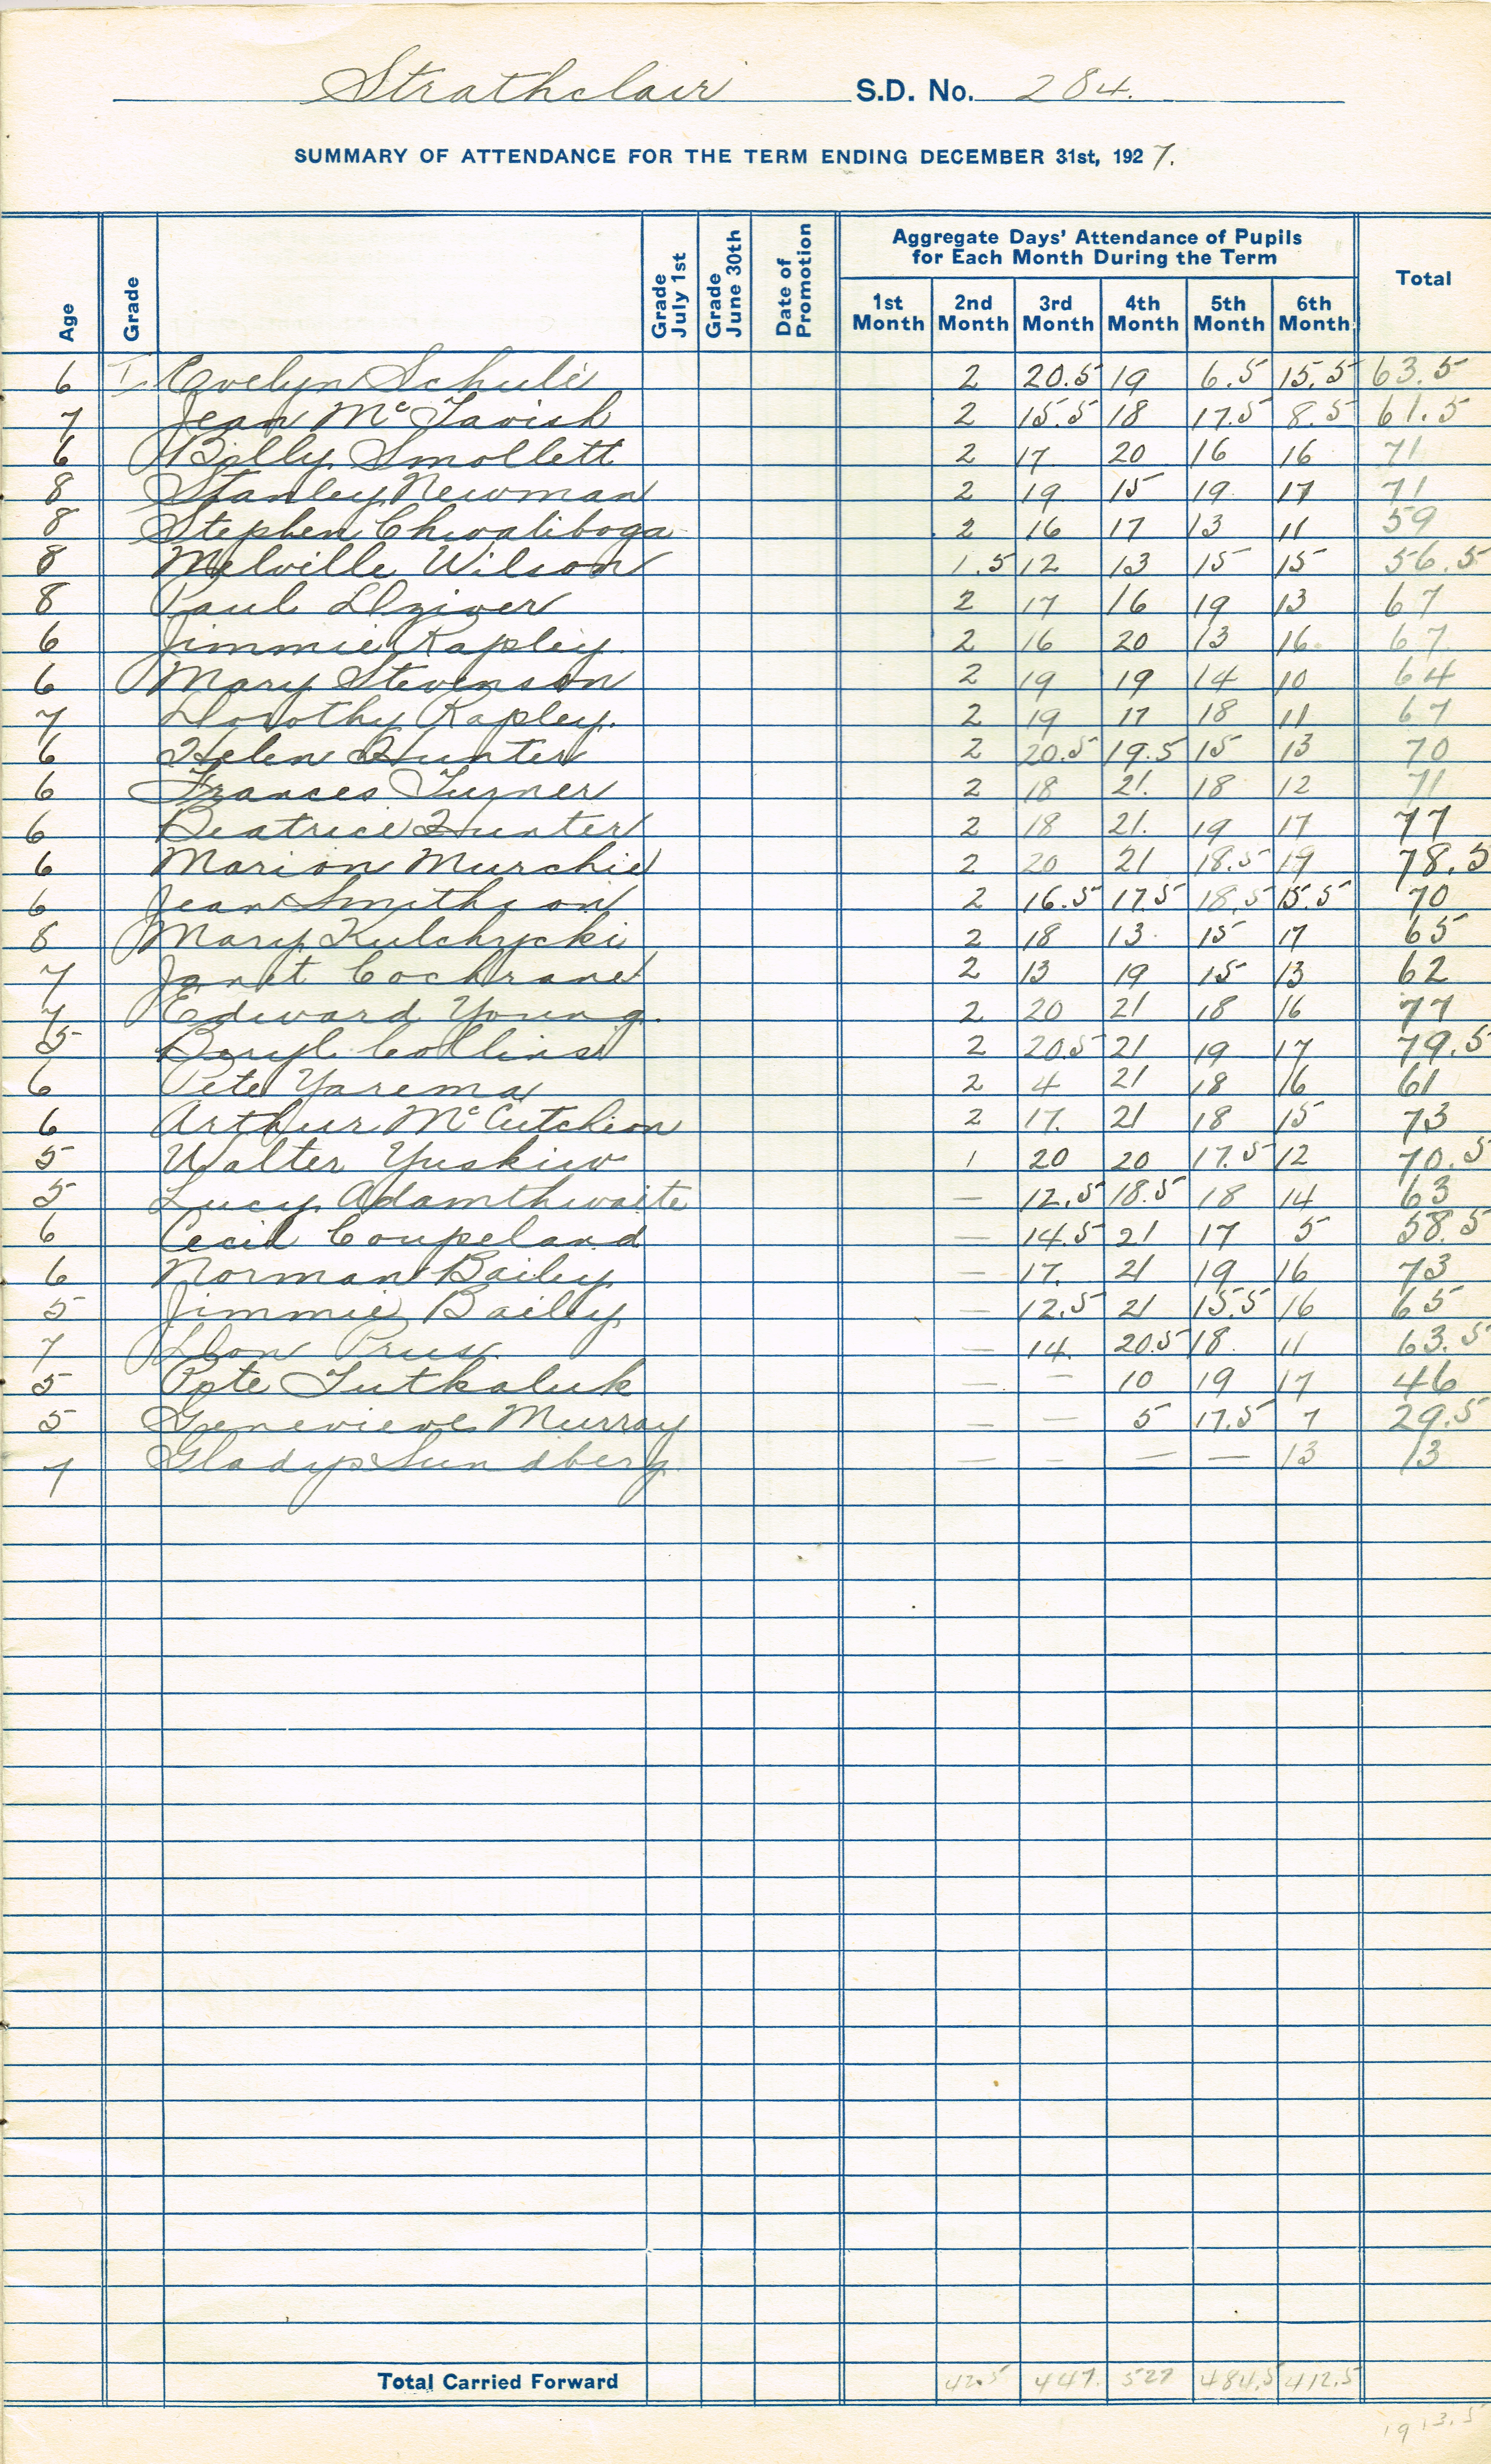 Strathclair S.D. No. 284.
SUMMARY OF ATTENDANCE FOR THE TERM ENDING DECEMBER 31st, 1927.
Age Grade Grade July 1st Grade June 30th Date of Promotion Aggregate Days' Attendance of Pupils for Each Month During the Term Total
1st Month 2nd Month 3rd Month 4th Month 5th Month 6th Month
6 I Evelyn Schule 2 20.5 19 6.5 15.5 63.5
7 Jean McTavish 2 15.5 18 17.5 8.5 61.5
6 Billy Smollett 2 17 20 16 16 71
8 Stanley Newman 2 19 15 19 17 71
8 Stephen Chwaliboga 2 16 17 13 11 59
8 Melville Wilson 1.5 12 13 15 15 56.5
8 Paul Dziver 2 17 16 19 13 67
6 Jimmie Rapley 2 16 20 13 16 67
6 Mary Stevenson 2 19 19 14 10 64
7 Dorothy Rapley. 2 19 17 18 11 67
6 Helen Hunter 2 20.5 19.5 15 13 70
6 Frances Turner 2 18 21. 18 12 71
6 Beatrice Hunter 2 18 21. 19 17 77
6 Marion Murchie 2 20 21 18.5 17 78.5
6 Jean Smithson 2 16.5 17.5 18.5 15.5 70
8 Mary Kulchycki 2 18 13 15 17 65
7 Janet Cochrane 2 13 19 15 13 62
7 Edward Young. 2 20 21 18 16 77
5 Beryl Collins 2 20.5 21 19 17 79.5
6 Pete Yarema 2 4 21 18 16 61
6 Arthur McCutcheon 2 17. 21 18 15 73
5 Walter Yuskiw 1 20 20 17.5 12 70.5
5 Lucy Adamthwaite — 12.5 18.5 18 14 63
6 Cecil Coupeland — 14.5 21 17 5 58.5
6 Norman Bailey — 17. 21 19 16 73
5 Jimmie Bailey — 12.5 21 15.5 16 65
7 Prus. — 14. 20.5 18 11 63.5
5 Pete Tutkaluk — — 10 19 17 46
5 Genevieve Murray — — 5 17.5 7 29.5
7 Gladys Sundberg — — — — 13 13
Total Carried Forward 42.5 447. 527 484.5 412.5
1913.5